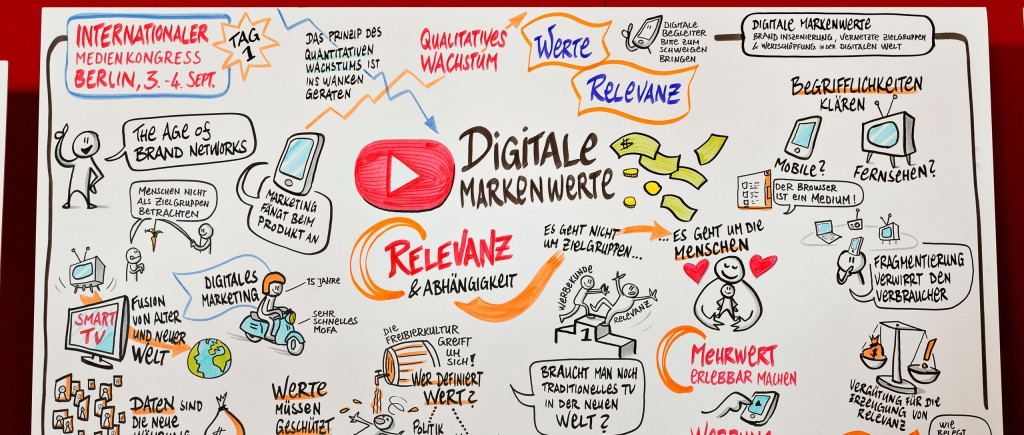 INTERNATIONALER
MEDIENKONGRESS
BERLIN, 3.-4. SEPT.
TAG
1
DAS PRINZIP DES
QUANTITATIVEN
WACHSTUMS IST
INS WANKEN
GERATEN
QUALITATIVES
WACHSTUM
WERTE
RELEVANZ
DIGITALE
BEGLEITER
BITTE ZUM
SCHWEIGEN
BRINGEN
DIGITALE MARKENWERTE
BRAND INSZENIERUNG, VERNETZTE ZIELGRUPPEN
& WERTSCHÖPFUNG IN DER DIGITALEN WELT
BEGRIFFLICHKEITEN
KLÄREN
MOBILE?
FERNSEHEN?
DER BROWSER
IST EIN MEDIUM!
THE AGE OF
BRAND NETWORKS
MENSCHEN NICHT
ALS ZIELGRUPPEN
BETRACHTEN
MARKETING
FÄNGT BEIM
PRODUKT AN
DIGITALE
MARKENWERTE
RELEVANZ
& ABHÄNGIGKEIT
ES GEHT NICHT
UM ZIELGRUPPEN...
...ES GEHT UM DIE
MENSCHEN
FRAGMENTIERUNG
VERWIRRT DEN
VERBRAUCHER
SMART
TV
FUSION
VON ALTER
UND NEUER
WELT
DIGITALES
MARKETING
15 JAHRE
SEHR
SCHNELLES
MOFA
WERBEKUNDE
RELEVANZ
DIE
FREIBIERKULTUR
GREIFT
UM SICH!
WER DEFINIERT
WERT?
POLITIK
BRAUCHT MAN NOCH
TRADITIONELLES TV
IN DER NEUEN
WELT?
MEHRWERT
ERLEBBAR MACHEN
VERGÜTUNG FÜR DIE
ERZEUGUNG VON
RELEVANZ
DATEN SIND
DIE NEUE
WÄHRUNG
WERTE
MÜSSEN
GESCHÜTZT
WERBUNG
WIE
BELEGT